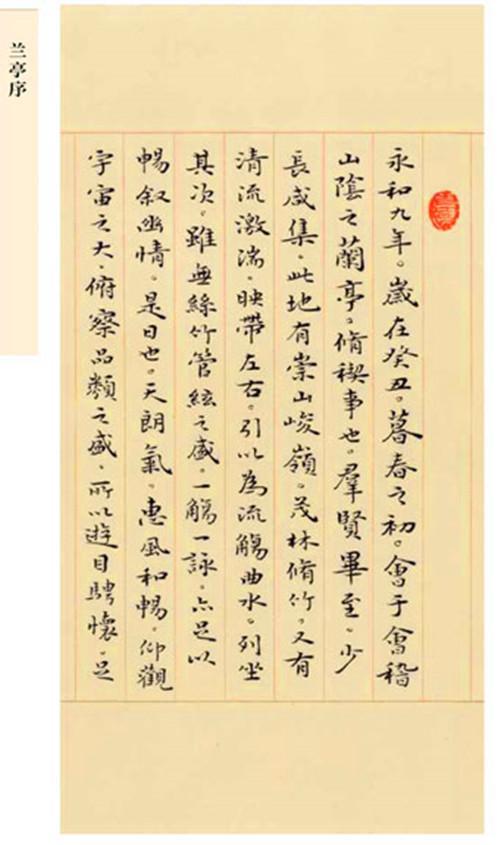 兰亭序
永和九年。歲在癸丑。暮春之初。會于會稽
山陰之蘭亭。脩稧事也。羣賢畢至。少
長咸集。此地有崇山峻嶺。茂林脩竹。又有
清流激湍。映帶左右。引以為流觴曲水。列坐
其次。雖無絲竹管絃之盛。一觴一詠。亦足以
暢叙幽情。是日也。天朗氣。惠風和暢。仰觀
宇宙之大。俯察品類之盛。所以遊目騁懷。足